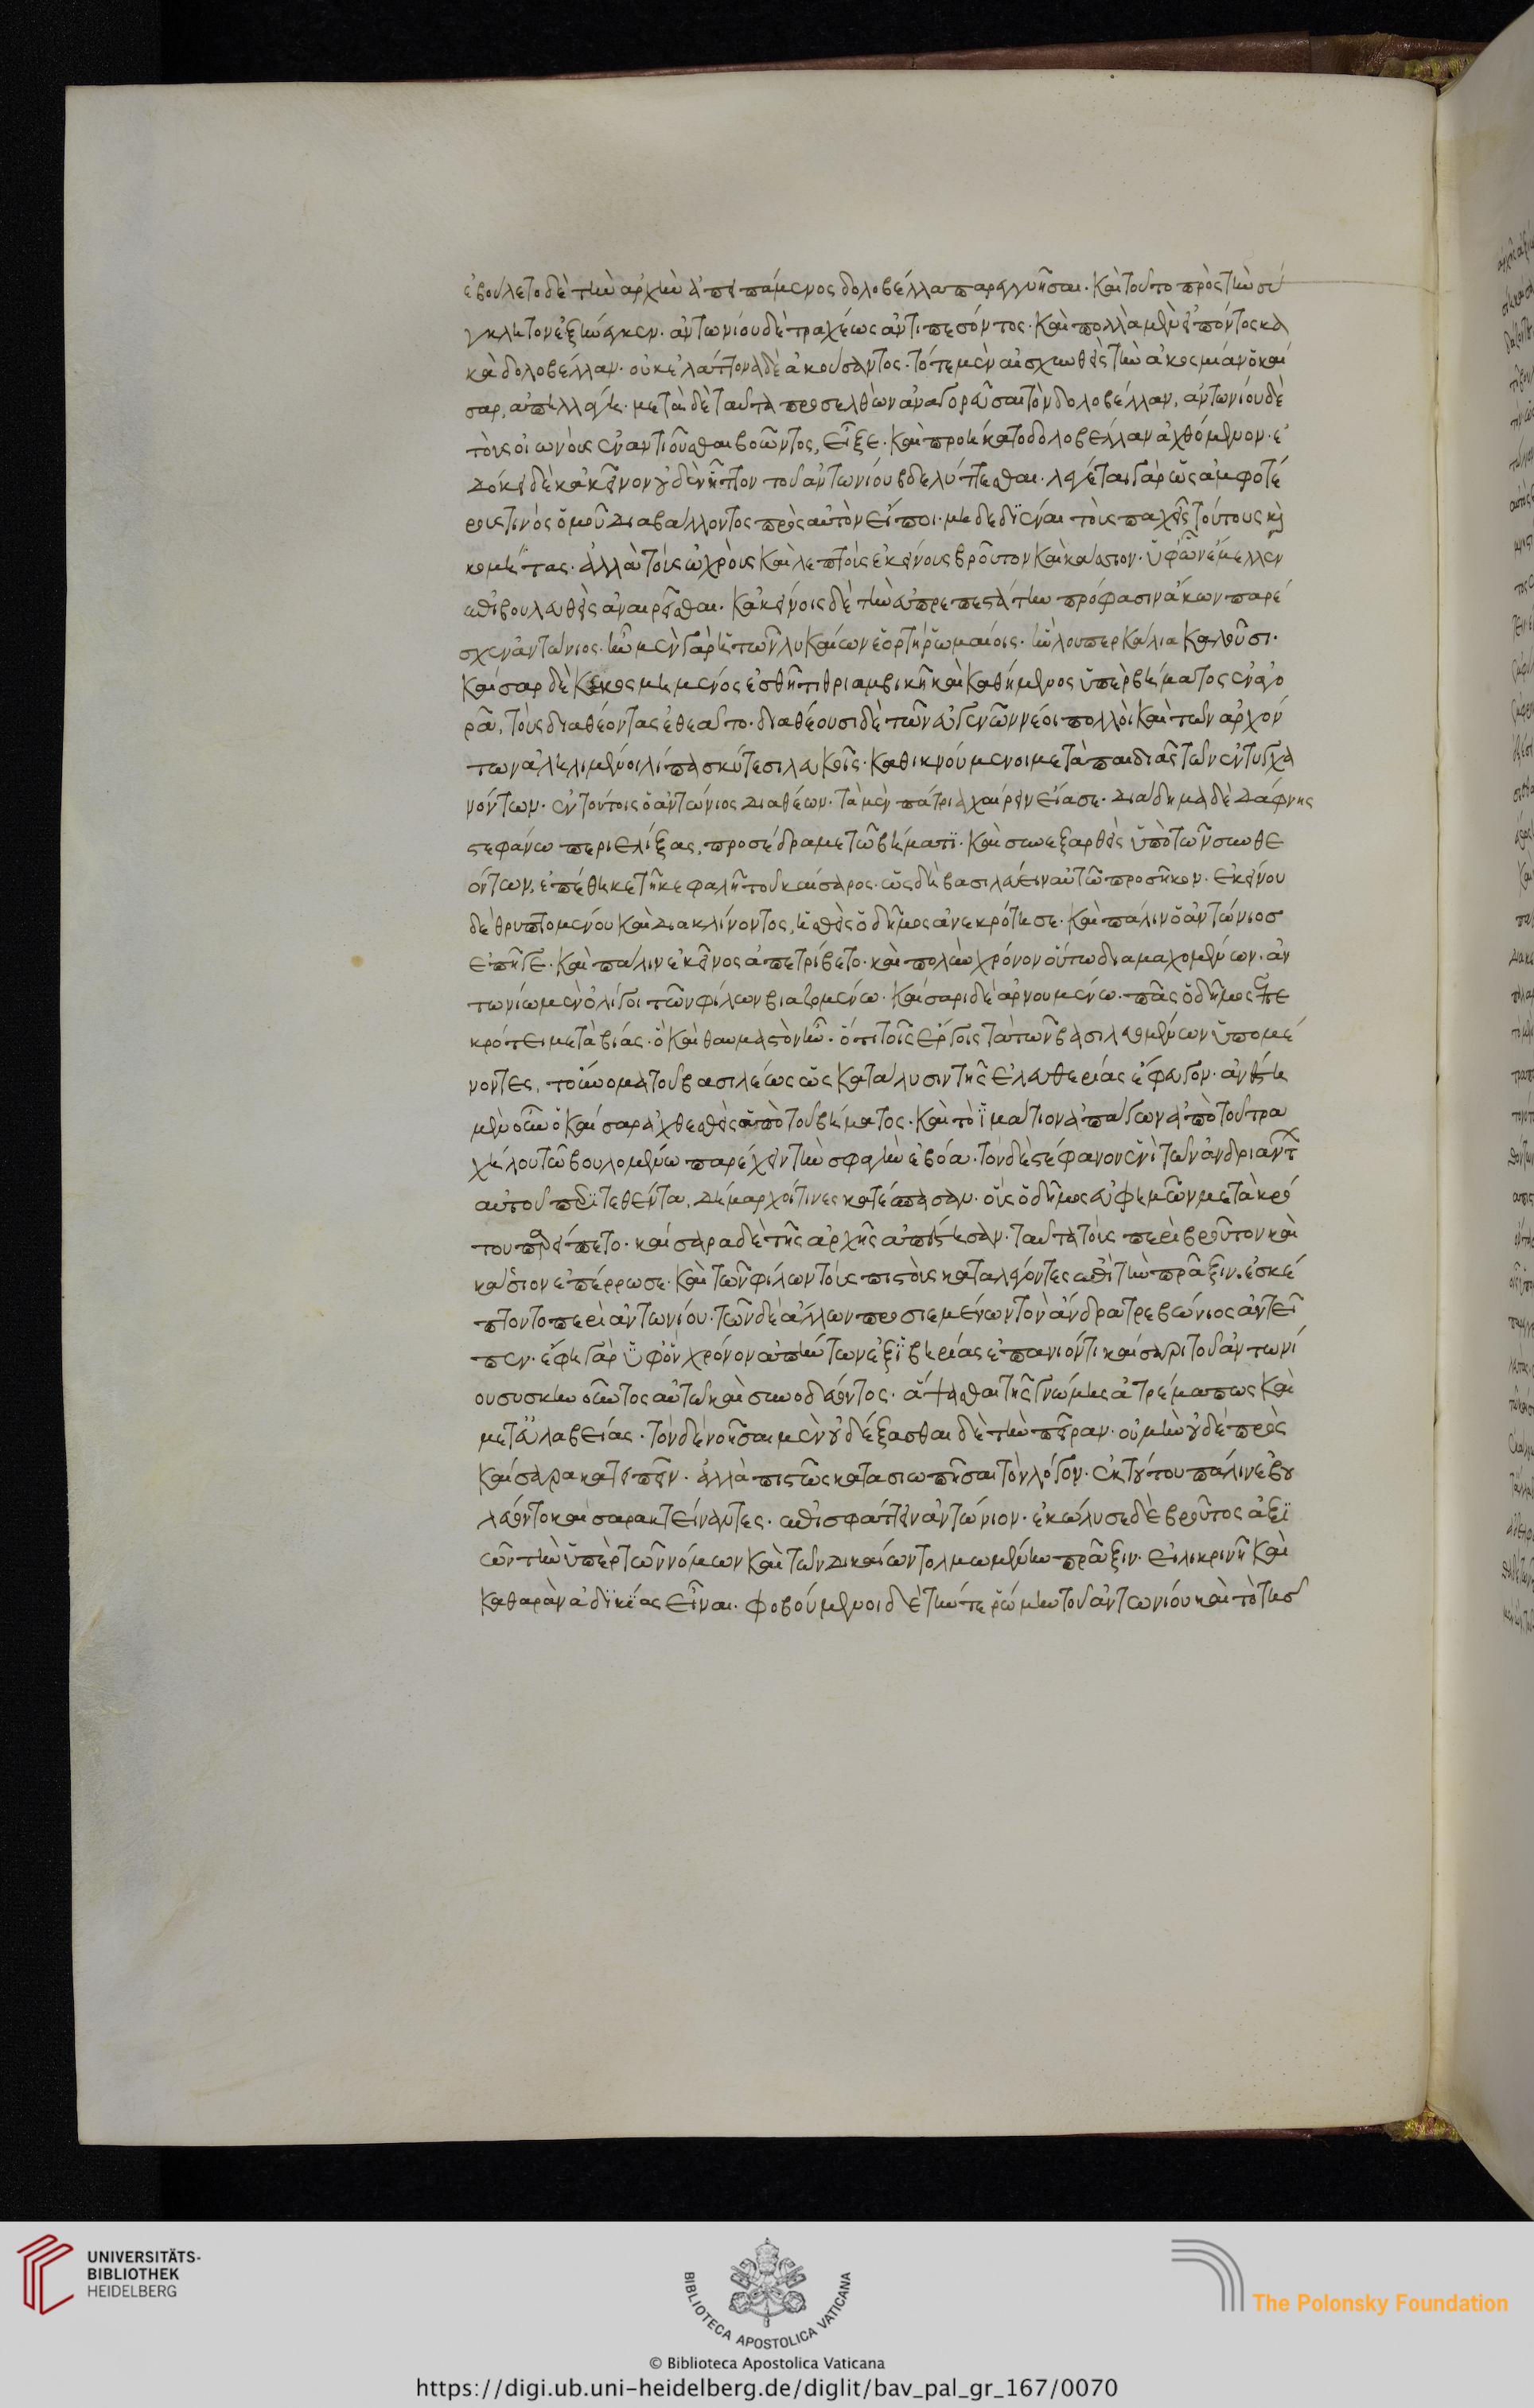 ἐβούλετο δὲ τὴν ἀρχὴν ἀπειπάμενος δολοβέλλα παρεγγυῆσαι. Καὶ τοῦτο πρὸς τὴν σύ
γκλητον ἐξήνεγκεν. ἀντωνίου δὲ τραχέως ἀντιπεσόντος. Καὶ πολλὰ μὲν εἰπόντος κα
κὰ δολοβέλλαν. οὐκ ἐλάττονα δὲ ἀκούσαντος. τότε μὲν αἰσχυνθεὶς τὴν ἀκοσμίαν ὁ καί
σαρ, ἀπηλλάγη. μετὰ δὲ ταῦτα προσελθὼν ἀναγορεῦσαι τὸν δολοβέλλαν, ἀντωνίου δὲ
τοὺς οἰωνοὺς ἐναντιοῦσθαι βοῶντος, εἶξε. Καὶ προήκατο δολοβέλλαν ἀχθόμενον. ἐ
δόκει δὲ κἀκεῖνον οὐδὲν ἧττον τοῦ ἀντωνίου βδελύττεσθαι. λέγεται γὰρ ὡς ἀμφοτέ
ρους τινὸς ὁμοῦ διαβάλλοντος πρὸς αὐτὸν εἴποι. μὴ δεδϊέναι τοὺς παχεῖς τούτους καὶ
κομήτας. ἀλλὰ τοὺς ὠχροὺς Καὶ λεπτοὺς ἐκείνους βροῦτον Καὶ κάσσιον. ὑφ' ὧν ἔμελλεν
ἐπιβουλευθεὶς ἀναιρεῖσθαι. Κἀκείνοις δὲ τὴν εὐπρεπεστάτην πρόφασιν ἄκων παρέ
σχεν ἀντώνιος. ἦν μὲν γὰρ ἡ τῶν λυκαίων ἑορτὴ ῥωμαίοις. ἣν λουπερκάλια Καλοῦσι.
Καίσαρ δὲ Κεκοσμημένος ἐσθῆτι θριαμβικῇ καὶ Καθήμενος ὑπὲρ βήματος ἐν ἀγο
ρᾶ, τοὺς διαθέοντας ἐθεᾶτο. διαθέουσι δὲ τῶν εὐγενῶν νέοι πολλοὶ Καὶ τῶν ἀρχόν
των ἀληλιμμένοι λίπα σκύτεσι λευκοῖς. Καθικνούμενοι μετὰ παιδιᾶς τῶν ἐντυγχα
νόντων. ἐν τούτοις ὁ ἀντώνιος διαθέων. τὰ μὲν πάτρια χαίρειν εἴασε. διάδημα δὲ δάφνης
στεφάνω περιελίξας, προσέδραμε τῶ βήματϊ. Καὶ συνεξαρθεὶς ὑπὸ τῶν συνθε
όντων, ἐπέθηκε τῆ κεφαλῆ τοῦ καίσαρος. ὡς δὴ βασιλεύειν αὐτῶ προσῆκον. ἐκείνου
δὲ θρυπτομένου Καὶ διακλίνοντος, ἡσθεὶς ὁ δῆμος ἀνεκρότησε. Καὶ πάλιν ὁ ἀντώνιος
ἐπῆγε. Καὶ πάλιν ἐκεῖνος ἀπετρίβετο. καὶ πολὺν χρόνον οὕτω διαμαχομένων. ἀν
τωνίω μὲν ὀλίγοι τῶν φίλων βιαζομένω. Καίσαρι δὲ ἀρνουμένω. πᾶς ὁ δῆμος ἐπε
κρότει μετὰ βίας. ὃ Καὶ θαυμαστὸν ἦν. ὅτι τοῖς ἔργοις τὰ τῶν βασιλευομένων ὑπομέ
νοντες, τοὔνομα τοῦ βασιλέως ὡς Κατάλυσιν τῆς ἐλευθερίας ἔφευγον. ἀνέστη
μὲν οὖν ὁ Καίσαρ ἀχθεσθεὶς ἀπὸ τοῦ βήματος. Καὶ τὸ ϊμάτιον ἀπάγων ἀπὸ τοῦ τρα
χήλου τῶ βουλομένω παρέχειν τὴν σφαγὴν ἐβόα. τὸν δὲ στέφανον ἑνὶ τῶν ἀνδριάντ
αὐτοῦ περϊτεθέντα, δήμαρχοί τινες κατέσπασαν. οὓς ὁ δῆμος εὐφημῶν μετὰ κρό
του παρείπετο. καίσαρα δὲ τῆς ἀρχῆς ἀπέστησαν. ταῦτα τοὺς περὶ βροῦτον καὶ
κάσσιον ἐπέρρωσε. Καὶ τῶν φίλων τοὺς πιστοὺς καταλέγοντες ἐπὶ τὴν πρᾶξιν. ἐσκέ
πτοντο περὶ ἀντωνίου. τῶν δὲ ἄλλων προσιεμένων τὸν ἄνδρα τρεβώνιος ἀντεῖ
πεν. ἔφη γὰρ ὑφ' ὃν χρόνον ἀπήντων ἐξ ϊβηρίας ἐπανιόντι καίσαρι τοῦ ἀντωνί
ου συσκηνοῦντος αὐτῶ καὶ συνοδεύοντος. ἅψασθαι τῆς γνώμης ἀτρέμα πως Καὶ
μετ' εὐλαβείας. τὸν δὲ νοῆσαι μὲν οὐ δέξασθαι δὲ τὴν πεῖραν. οὐ μὴν οὐδὲ πρὸς
Καίσαρα κατειπεῖν. ἀλλὰ πιστῶς κατασιωπῆσαι τὸν λόγον. ἐκ τούτου πάλιν ἐβου
λεύοντο καίσαρα κτείναντες. ἐπισφάττειν ἀντώνιον. ἐκώλυσε δὲ βροῦτος ἀξϊ
ῶν τὴν ὑπὲρ τῶν νόμων Καὶ τῶν δικαίων τολμωμένην πρᾶξιν. εἰλικρινῆ Καὶ
Καθαρὰν ἀδϊκίας εἶναι. φοβούμενοι δὲ τήν τε ῥώμην τοῦ ἀντωνίου καὶ τὸ τῆσ
UNIVERSITÄTS-
BIBLIOTHEK
HEIDELBERG
BIBLIOTECA APOSTOLICA VATICANA
The Polonsky Foundation
© Biblioteca Apostolica Vaticana
https://digi.ub.uni-heidelberg.de/diglit/bav_pal_gr_167/0070